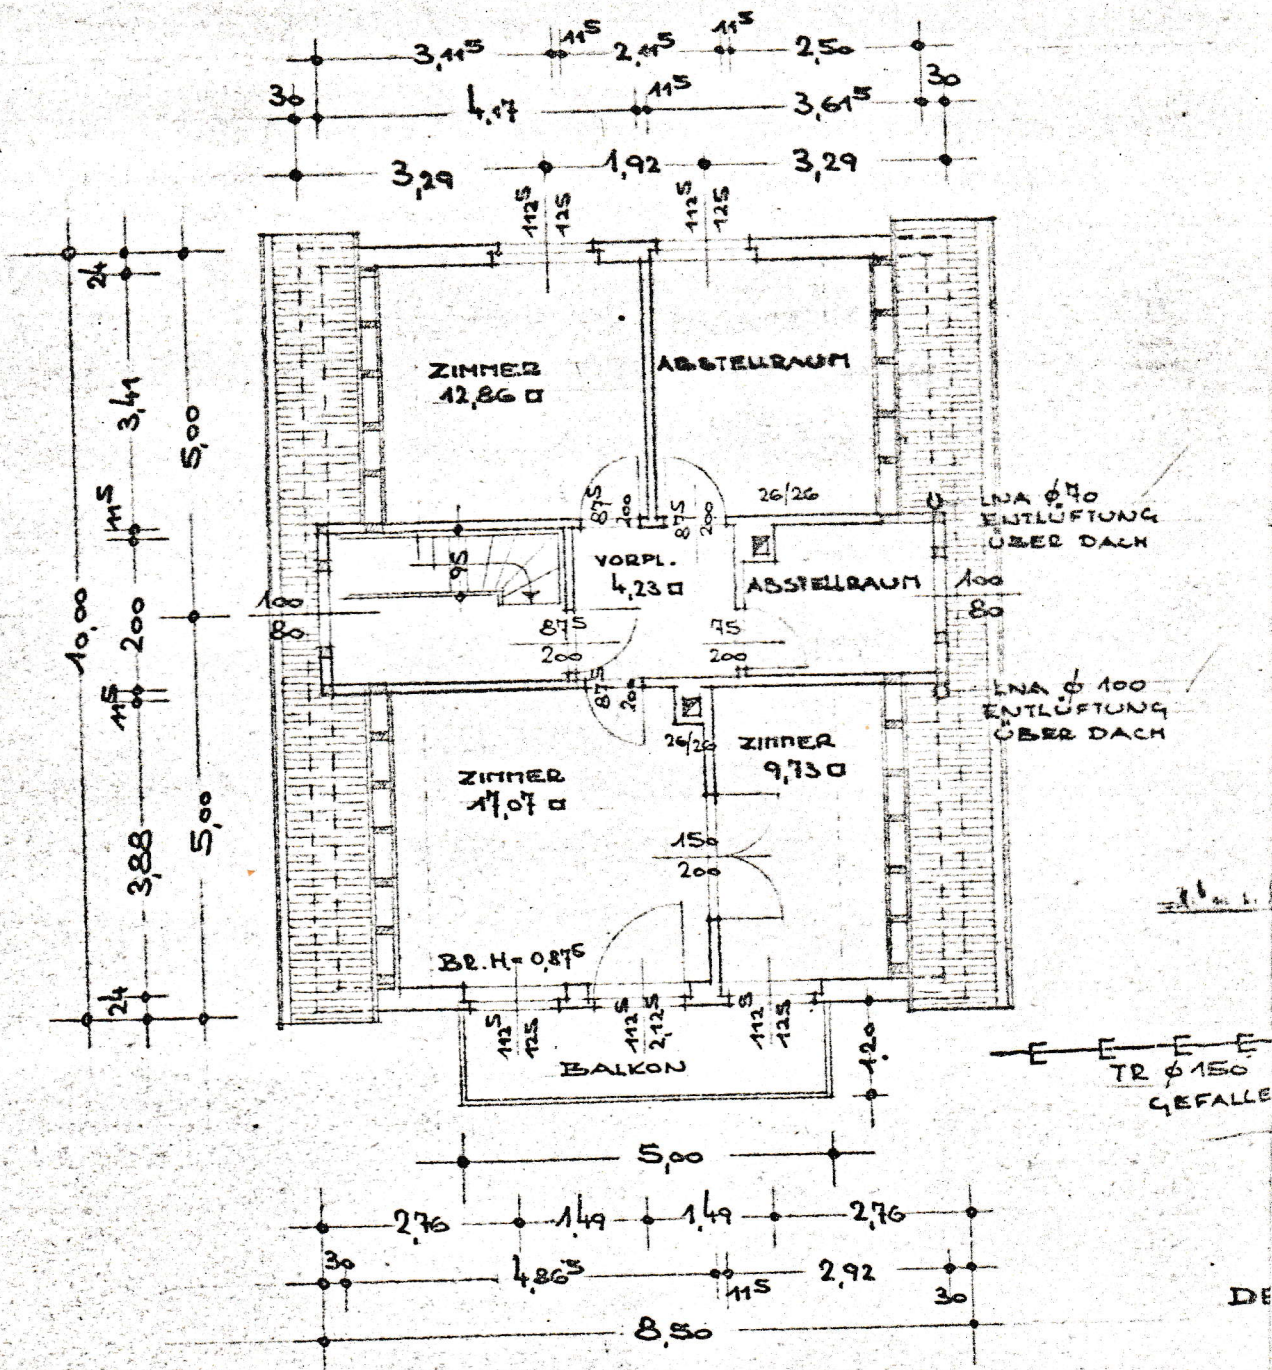 3,11⁵ 11⁵ 2,11⁵ 11⁵ 2,50
30 4,17 11⁵ 3,61⁵ 30
3,29 1,92 3,29
112⁵
125
112⁵
125
24
3,41
11⁵
200
11⁵
3,88
24
5,00
5,00
10,00
ZIMMER
12,86 □
ABSTELLRAUM
87⁵
200
87⁵
200
26/26
LNA ϕ 70
ENTLÜFTUNG
ÜBER DACH
95
VORPL.
4,23 □
ABSTELLRAUM
100
80
100
80
87⁵
200
75
200
87⁵
200
LNA ϕ 100
ENTLÜFTUNG
ÜBER DACH
26/26
ZIMMER
9,73 □
ZIMMER
17,07 □
150
200
BR.H= 0,87⁵
112⁵
125
112⁵
2,12⁵
112⁵
125
BALKON
1,20
TR ϕ 150
GEFÄLLE
5,00
2,76 1,49 1,49 2,76
30 4,86⁵ 11⁵ 2,92 30
8,50
DE